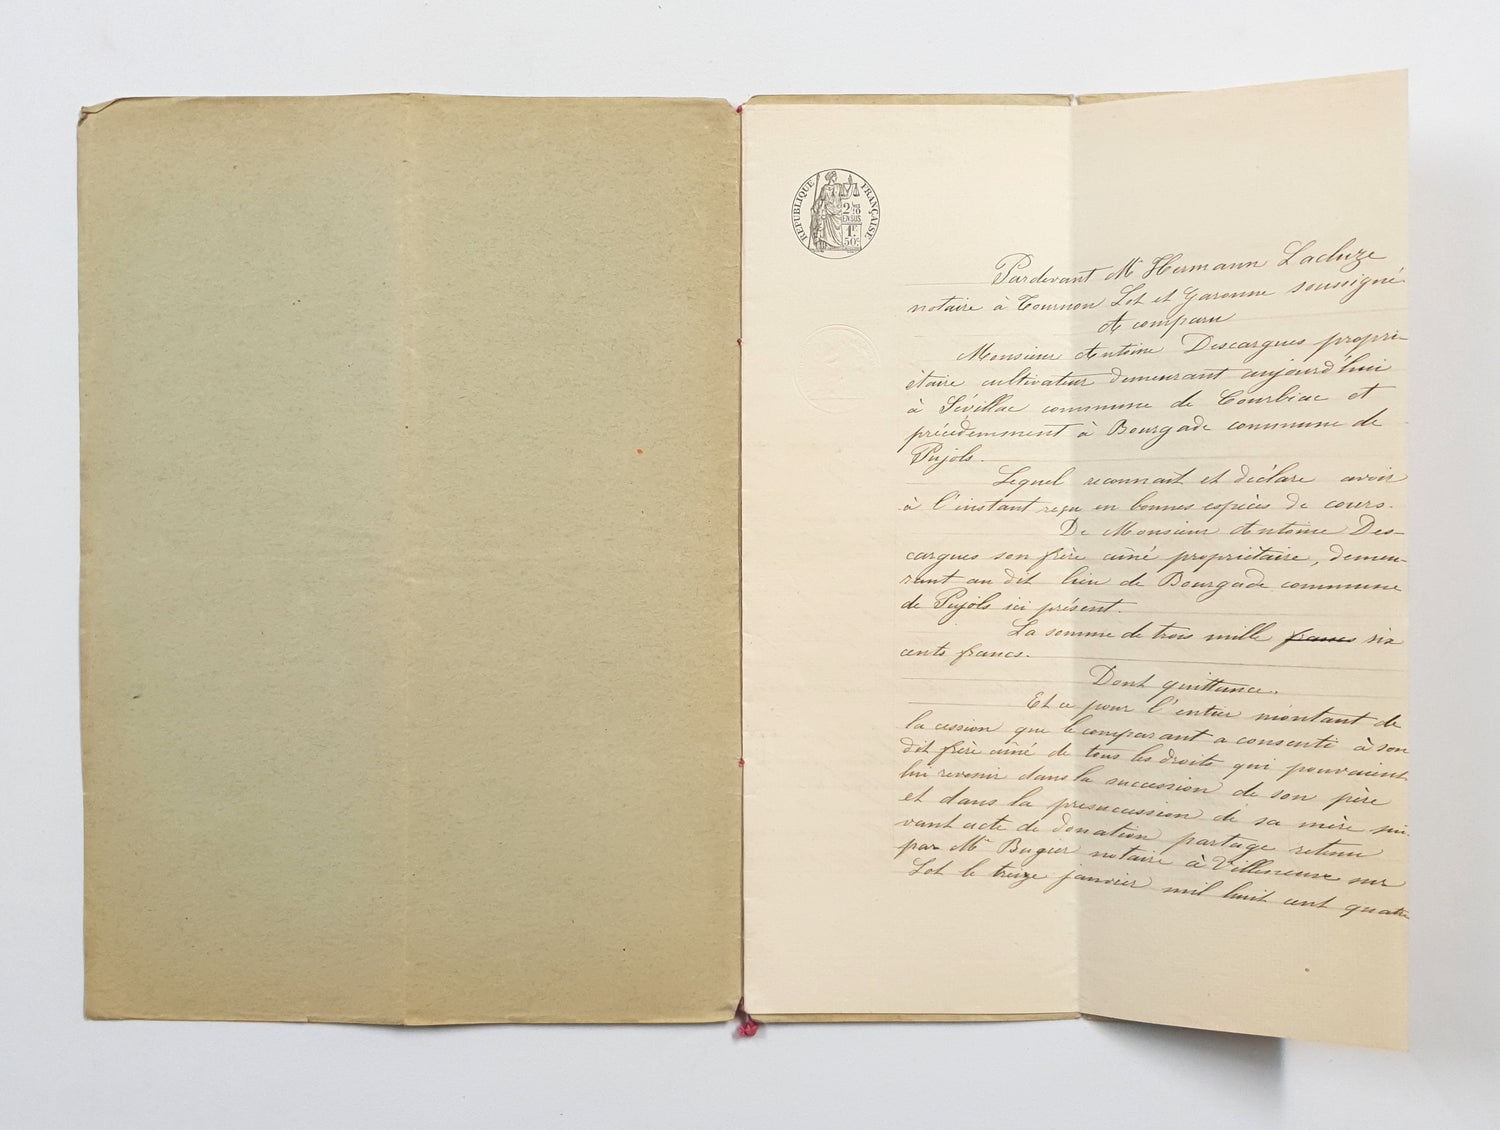 RÉPUBLIQUE FRANÇAISE
2/10
EN SUS
1F.
50c.
Pardevant Me Hermann Lacluze
notaire à Tournon Lot et Garonne soussigné
A comparu
Monsieur Antoine Descargues propri-
étaire cultivateur demeurant aujourd'hui
à Sévillac commune de Courbiac et
précédemment à Bourgade commune de
Pujols.
Lequel reconnait et déclare avoir
à l'instant reçu en bonnes espèces de cours.
De Monsieur Antoine Des-
cargues son frère ainé propriétaire, demeu-
rant au dit lieu de Bourgade commune
de Pujols ici présent.
La somme de trois mille francs six
cents francs.
Dont quittance.
Et ce pour l'entier montant de
la cession que le comparant a consenti à son
dit frère ainé de tous les droits qui pouvaient
lui revenir dans la succession de son père
et dans la présuccession de sa mère sui-
vant acte de donation partage retenu
par Me Bugier notaire à Villeneuve sur
Lot le treize janvier mil huit cent quatre